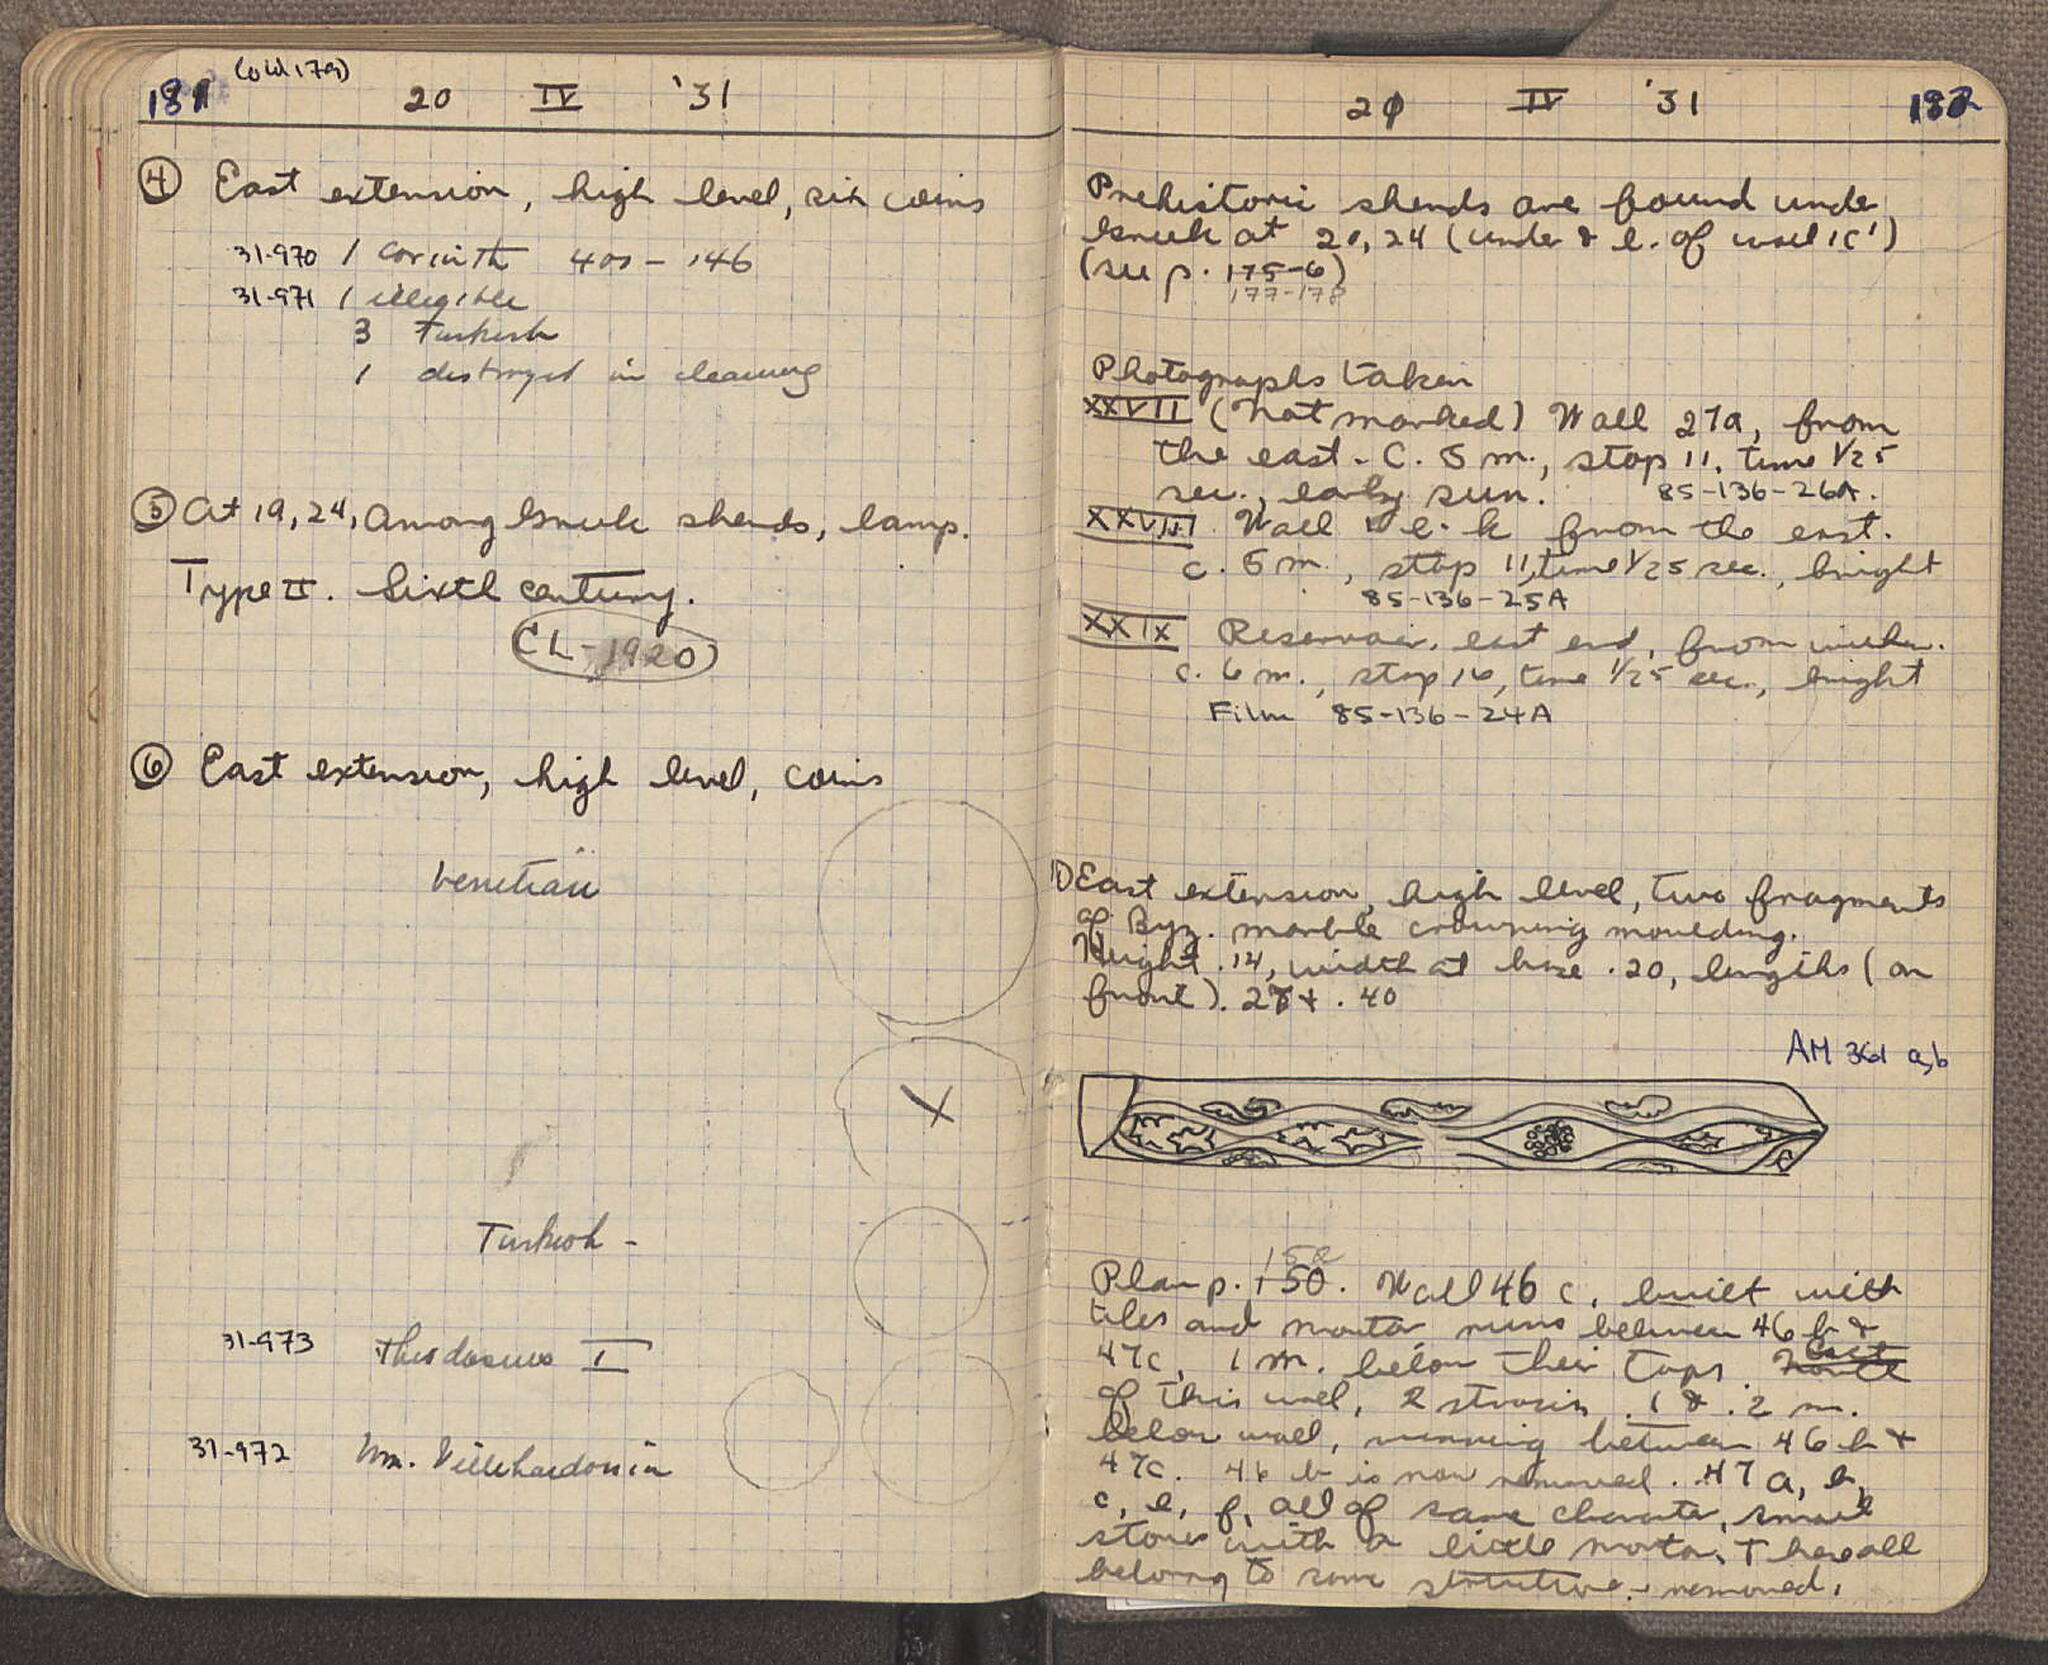 181 (old 179) 20 IV '31
④ East extension, high level, six coins
31-970 1 Corinth 400-146
31-971 1 illegible
3 Turkish
1 destroyed in cleaning
⑤ At 19, 24, among Greek sherds, lamp.
Type II. Sixth century.
CL-1920
⑥ East extension, high level, coins
Venetian
X
Turkish -
31-973 Theodosius I
31-972 Wm. Villehardouin
IV '31 182
Prehistoric sherds are found under
Greek at 20, 24 (under & e. of wall 'c')
(see p. 175-6)
177-178
Photographs taken
XXVII (not marked) Wall 27a, from
the east. C. 5 m., stop 11, time 1/25
sec., early sun. 85-136-26A.
XXVIII. Wall e-k from the east.
c. 5 m., stop 11, time 1/25 sec., bright
85-136-25A
XXIX Reservoir, east end, from
c. 6 m., stop 16, time 1/25 sec., bright
Film 85-136-24A
① East extension, high level, two fragments
of Byz. marble crowning moulding.
Height .14, width at base .20, lengths (on
front) .27 + .40
AM 361 a,b
158
Plan p. 150. Wall 46 c, built with
tiles and mortar runs between 46 b &
47c, 1 m. below their tops. East
of this wall, 2 .1 & .2 m.
below wall, running between 46 b &
47c. 46 b is now removed. 47 a, b,
c, e, f, all of same character, small
stones with a little mortar. These all
belong to same structure - removed.